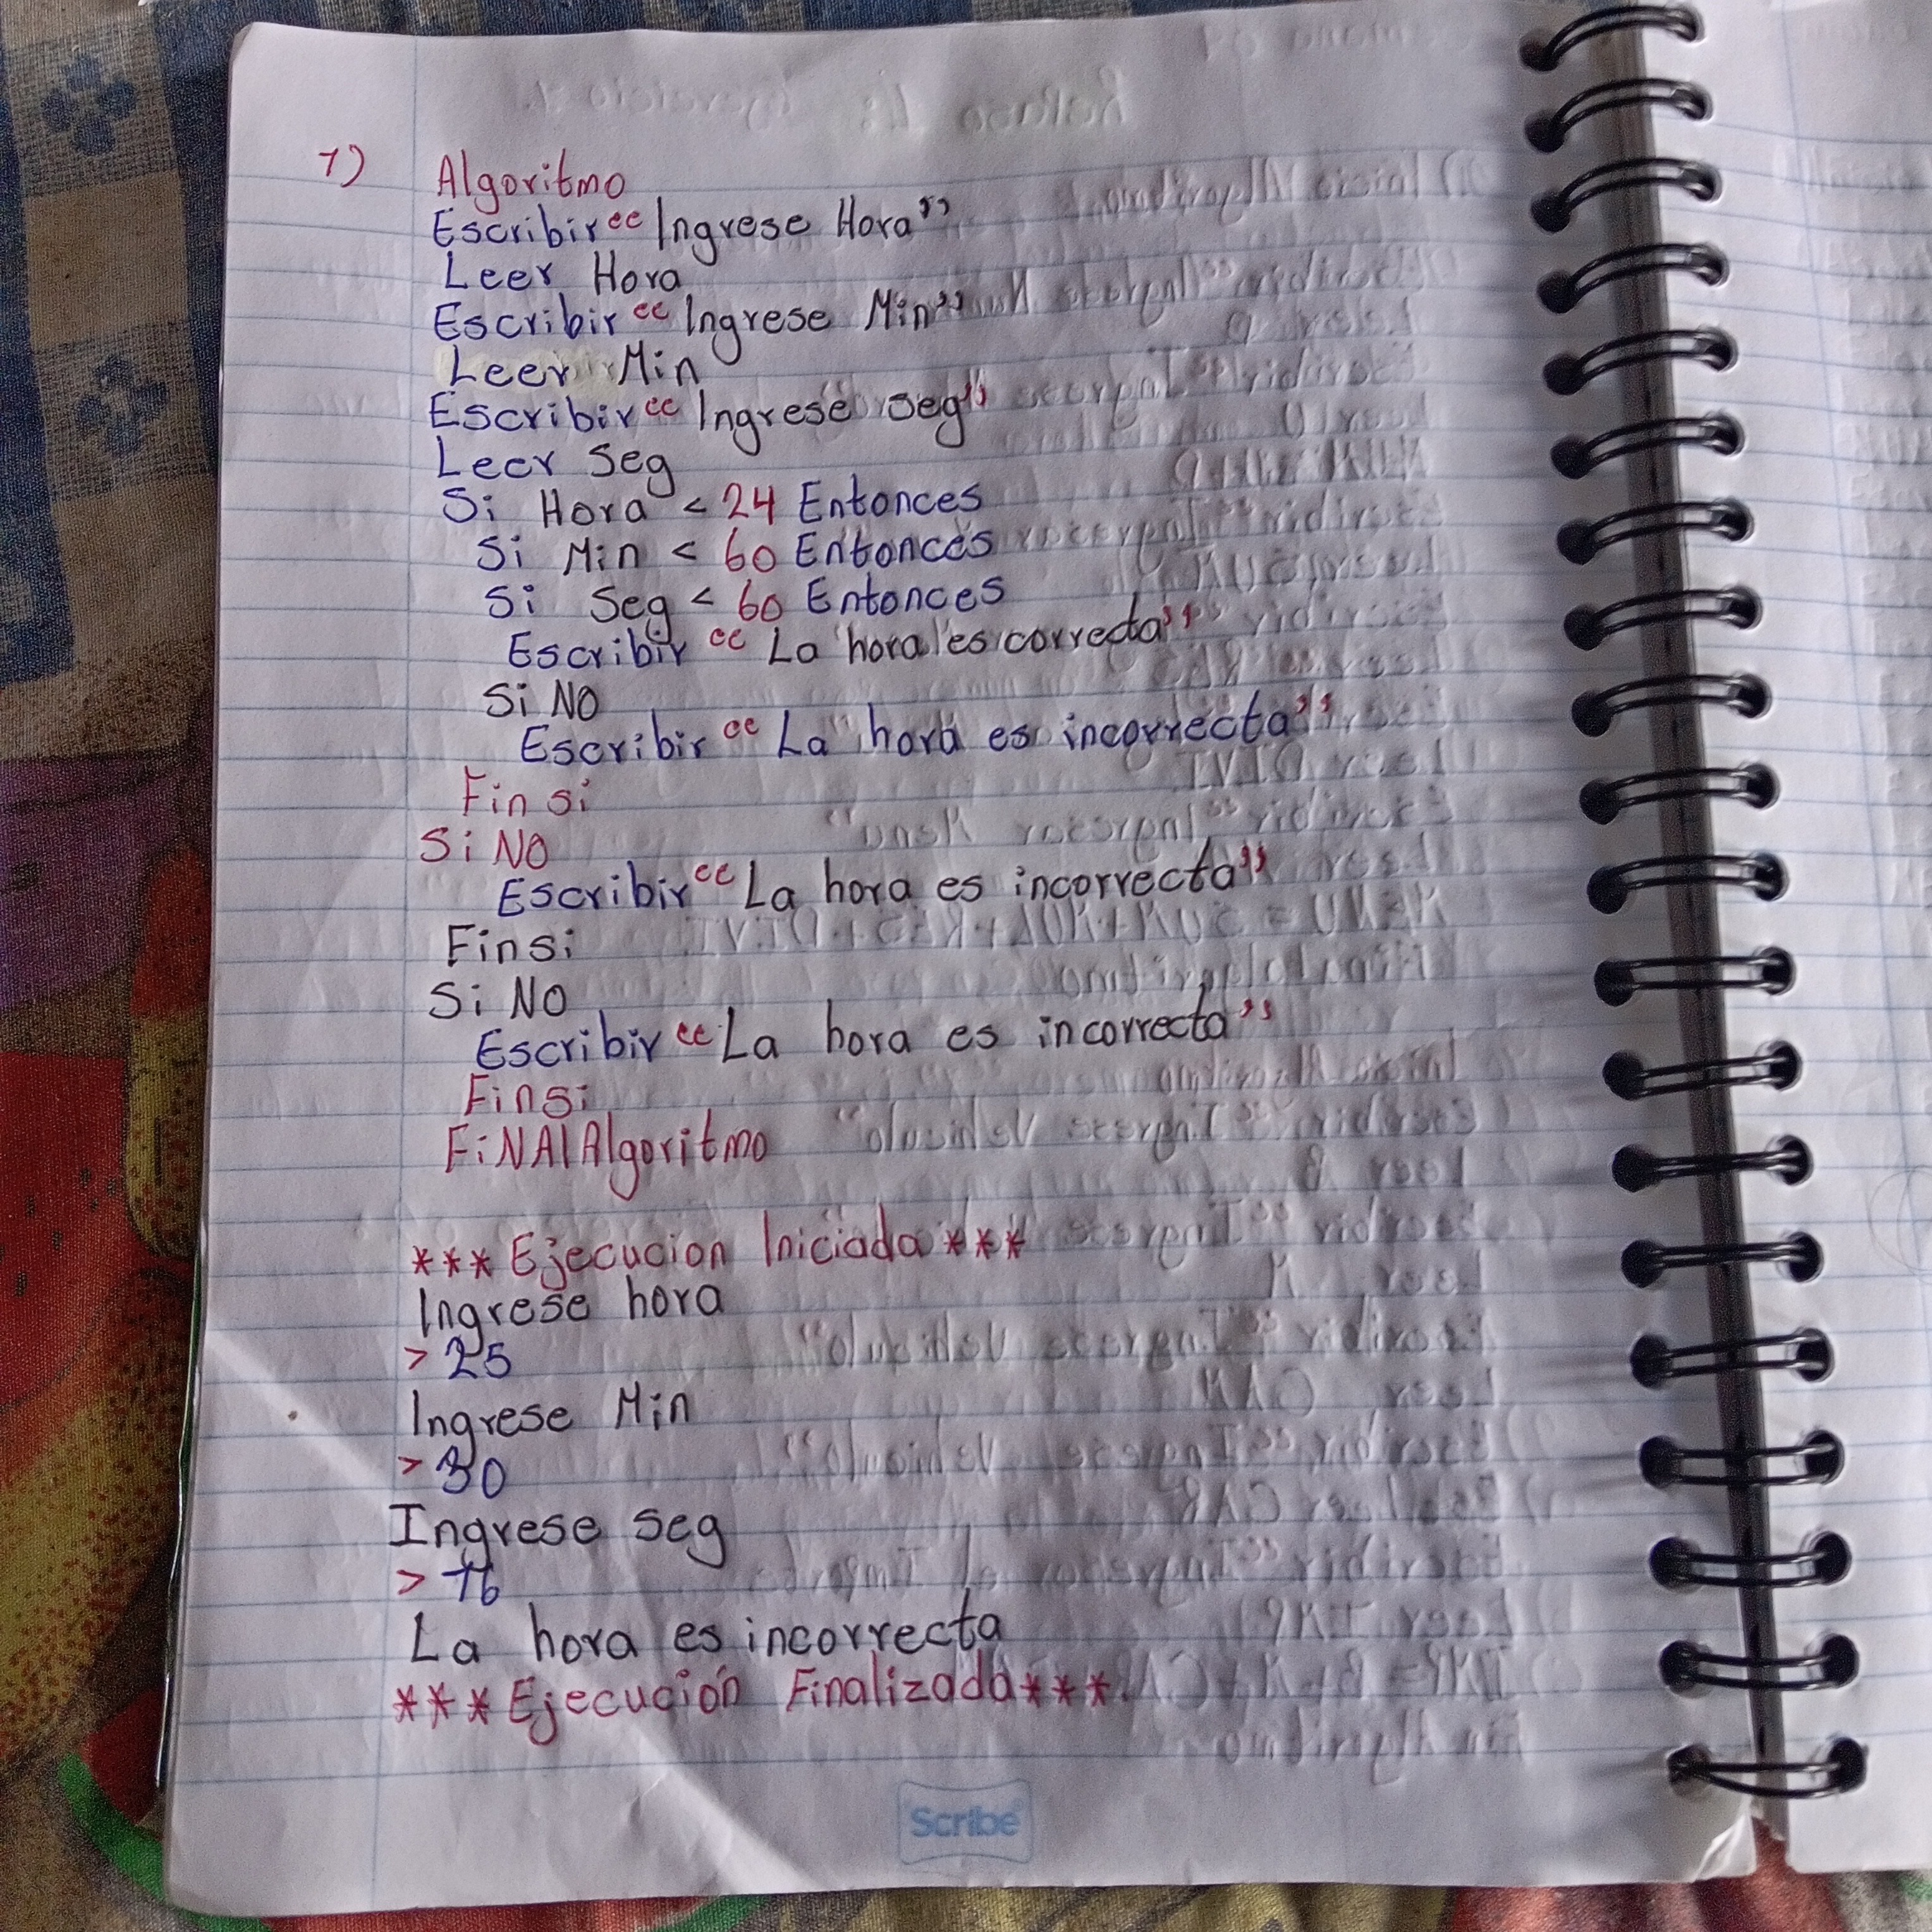 7) Algoritmo
Escribir "Ingrese Hora"
Leer Hora
Escribir "Ingrese Min"
Leer Min
Escribir "Ingrese seg"
Leer Seg
Si Hora < 24 Entonces
Si Min < 60 Entonces
Si Seg < 60 Entonces
Escribir "La hora es correcta"
Si NO
Escribir "La hora es incorrecta"
Fin si
Si NO
Escribir "La hora es incorrecta"
Finsi
Si NO
Escribir "La hora es incorrecta"
Finsi
FiNAlAlgoritmo
*** Ejecucion Iniciada ***
Ingrese hora
> 25
Ingrese Min
> 30
Ingrese seg
> 16
La hora es incorrecta
*** Ejecución Finalizada ***
Scribe